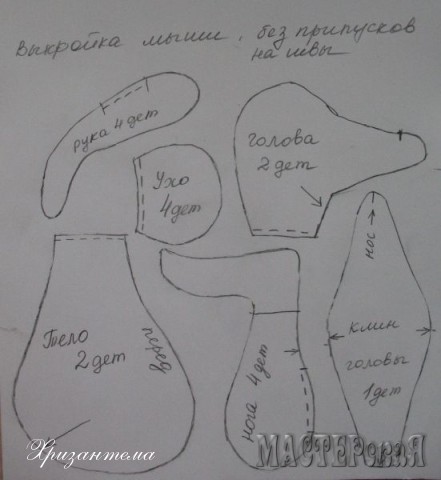 Выкройка мыши, без припусков
на швы
рука 4 дет
Ухо
4 дет
голова
2 дет
нос
Тело
2 дет
перед
нога 4 дет
клин
головы
1 дет
Хризантема
МАСТЕРскаЯ